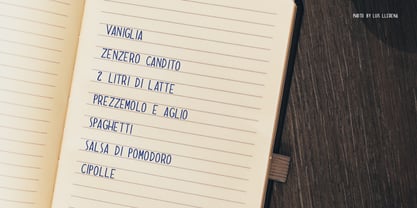 PHOTO BY LUIS LLERENA
VANIGLIA
ZENZERO CANDITO
2 LITRI DI LATTE
PREZZEMOLO E AGLIO
SPAGHETTI
SALSA DI POMODORO
CIPOLLE